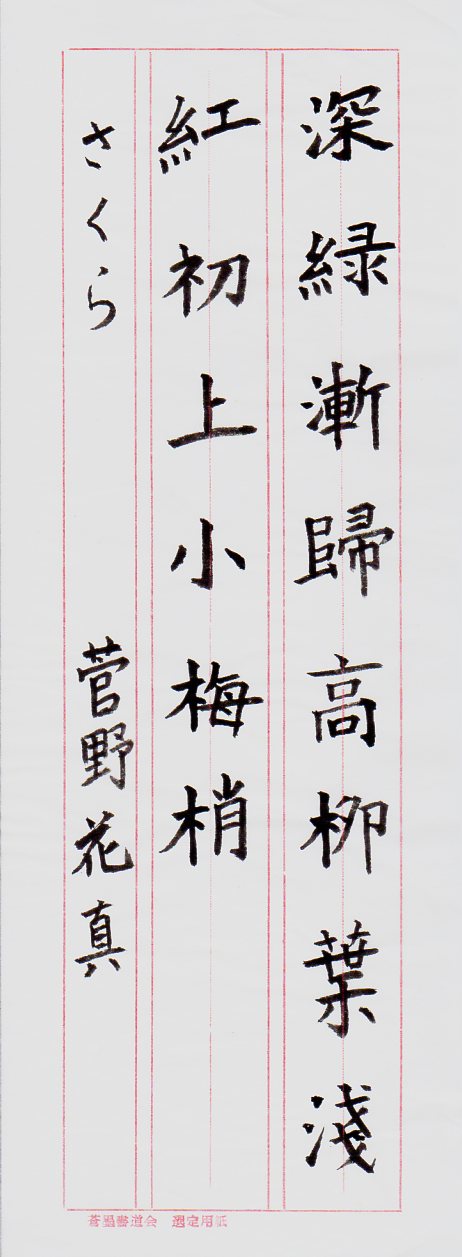 深緑漸歸高柳葉淺
紅初上小梅梢
さくら 菅野花真
蒼墨書道会 選定用紙